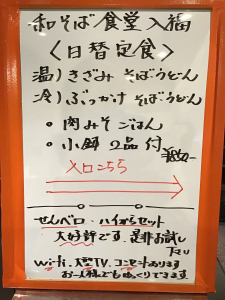 和そば食堂 入福
〈日替定食〉
温)きざみそばうどん
冷)ぶっかけそばうどん
• 肉みそごはん
• 小鉢 2品付
入口こちら
せんべロ・ハイからセット
大好評です 是非お試し
下さい
Wi-fi、大型TV、コンセントあります
お一人様でもゆっくりできます